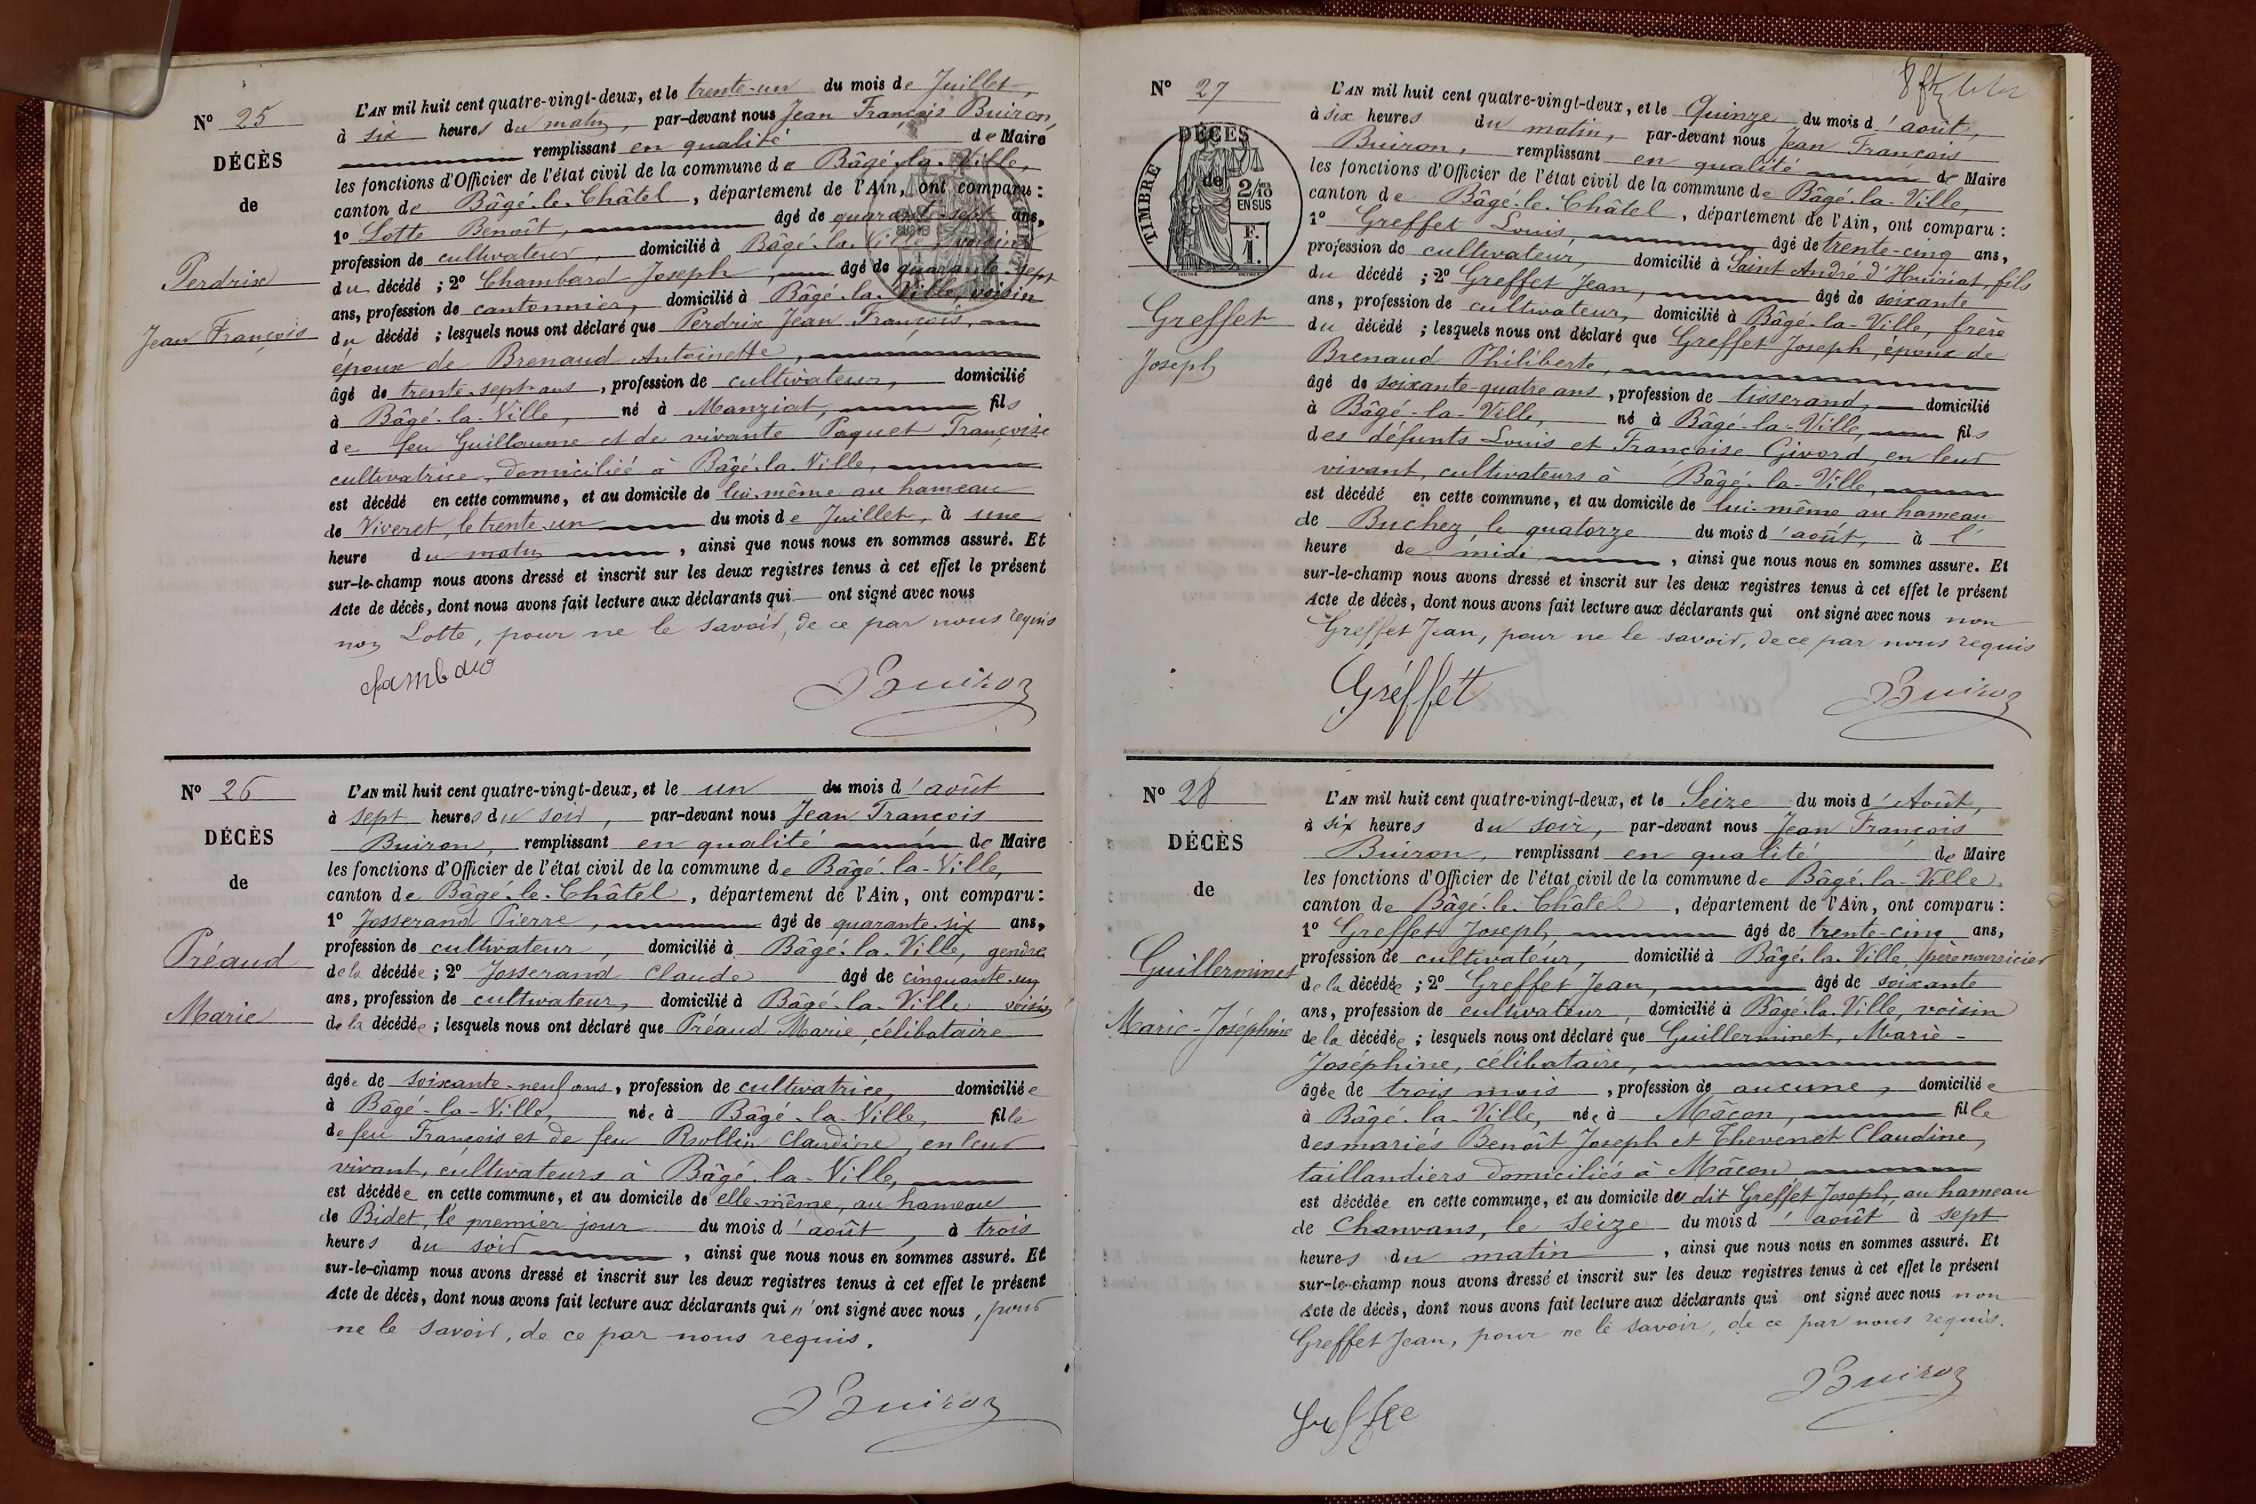 Nº 25
DÉCÈS
de
Perdrix
Jean François
L'AN mil huit cent quatre-vingt-deux, et le trente-un du mois de Juillet,
à six heures du matin, par-devant nous Jean François Buiron,
remplissant en qualité de Maire
les fonctions d'Officier de l'état civil de la commune de Bâgé-la-Ville,
canton de Bâgé-le-Châtel, département de l'Ain, ont comparu :
1º Lotte Benoît, âgé de quarante-sept ans,
profession de cultivateur, domicilié à Bâgé-la-Ville, voisin
du décédé ; 2º Chambard Joseph, âgé de quarante-sept
ans, profession de cantonnier, domicilié à Bâgé-la-Ville, voisin
du décédé ; lesquels nous ont déclaré que Perdrix Jean François,
époux de Brenaud Antoinette,
âgé de trente-sept ans, profession de cultivateur, domicilié
à Bâgé-la-Ville, né à Manziat, fils
de feu Guillaume et de vivante Paquet Françoise
cultivatrice, domiciliée à Bâgé-la-Ville,
est décédé en cette commune, et au domicile de lui-même au hameau
de Viveret, le trente-un du mois de Juillet, à une
heure du matin, ainsi que nous nous en sommes assuré. Et
sur-le-champ nous avons dressé et inscrit sur les deux registres tenus à cet effet le présent
Acte de décès, dont nous avons fait lecture aux déclarants qui ont signé avec nous
non Lotte, pour ne le savoir, de ce par nous requis
Buiron
Nº 26
DÉCÈS
de
Préaud
Marie
L'AN mil huit cent quatre-vingt-deux, et le un du mois d'août
à sept heures du soir, par-devant nous Jean François
Buiron, remplissant en qualité de Maire
les fonctions d'Officier de l'état civil de la commune de Bâgé-la-Ville,
canton de Bâgé-le-Châtel, département de l'Ain, ont comparu :
1º Josserand Pierre, âgé de quarante-six ans,
profession de cultivateur, domicilié à Bâgé-la-Ville, gendre
de la décédée ; 2º Josserand Claude âgé de cinquante-un
ans, profession de cultivateur, domicilié à Bâgé-la-Ville voisin
de la décédée ; lesquels nous ont déclaré que Préaud Marie, célibataire
âgée de soixante-neuf ans, profession de cultivatrice, domiciliée
à Bâgé-la-Ville, née à Bâgé-la-Ville, fille
de feu François et de feu Rollin Claudine, en leur
vivant, cultivateurs à Bâgé-la-Ville,
est décédée en cette commune, et au domicile de elle-même, au hameau
de Bidet, le premier jour du mois d'août, à trois
heures du soir, ainsi que nous nous en sommes assuré. Et
sur-le-champ nous avons dressé et inscrit sur les deux registres tenus à cet effet le présent
Acte de décès, dont nous avons fait lecture aux déclarants qui n'ont signé avec nous, pour
ne le savoir, de ce par nous requis.
Buiron
Nº 27
DÉCÈS
de
TIMBRE
2/10 EN SUS
F. 1.
Greffet
Joseph
L'AN mil huit cent quatre-vingt-deux, et le Quinze du mois d'août,
à six heures du matin, par-devant nous Jean François
Buiron, remplissant en qualité de Maire
les fonctions d'Officier de l'état civil de la commune de Bâgé-la-Ville,
canton de Bâgé-le-Châtel, département de l'Ain, ont comparu :
1º Greffet Louis, âgé de trente-cinq ans,
profession de cultivateur, domicilié à Saint André d'Huiriat, fils
du décédé ; 2º Greffet Jean, âgé de soixante
ans, profession de cultivateur, domicilié à Bâgé-la-Ville, frère
du décédé ; lesquels nous ont déclaré que Greffet Joseph, époux de
Brenaud Philiberte,
âgé de soixante-quatre ans, profession de tisserand, domicilié
à Bâgé-la-Ville, né à Bâgé-la-Ville, fils
des défunts Louis et Françoise Givord, en leur
vivant, cultivateurs à Bâgé-la-Ville,
est décédé en cette commune, et au domicile de lui-même au hameau
de Buchez, le quatorze du mois d'août, à l'
heure de midi, ainsi que nous nous en sommes assuré. Et
sur-le-champ nous avons dressé et inscrit sur les deux registres tenus à cet effet le présent
Acte de décès, dont nous avons fait lecture aux déclarants qui ont signé avec nous non
Greffet Jean, pour ne le savoir, de ce par nous requis
Gréffétt
Buiron
Nº 28
DÉCÈS
de
Guillerminet
Marie-Joséphine
L'AN mil huit cent quatre-vingt-deux, et le Seize du mois d'Août,
à six heures du soir, par-devant nous Jean François
Buiron, remplissant en qualité de Maire
les fonctions d'Officier de l'état civil de la commune de Bâgé-la-Ville,
canton de Bâgé-le-Châtel, département de l'Ain, ont comparu :
1º Greffet Joseph, âgé de trente-cinq ans,
profession de cultivateur, domicilié à Bâgé-la-Ville, père nourricier
de la décédée ; 2º Greffet Jean, âgé de soixante
ans, profession de cultivateur, domicilié à Bâgé-la-Ville, voisin
de la décédée ; lesquels nous ont déclaré que Guillerminet, Marie-
Joséphine, célibataire,
âgée de trois mois, profession de aucune, domiciliée
à Bâgé-la-Ville, née à Mâcon, fille
des mariés Benoît Joseph et Thevenet Claudine,
taillandiers domiciliés à Mâcon
est décédée en cette commune, et au domicile du dit Greffet Joseph, au hameau
de Chanvans, le seize du mois d'août à sept
heures du matin, ainsi que nous nous en sommes assuré. Et
sur-le-champ nous avons dressé et inscrit sur les deux registres tenus à cet effet le présent
Acte de décès, dont nous avons fait lecture aux déclarants qui ont signé avec nous non
Greffet Jean, pour ne le savoir, de ce par nous requis.
Buiron